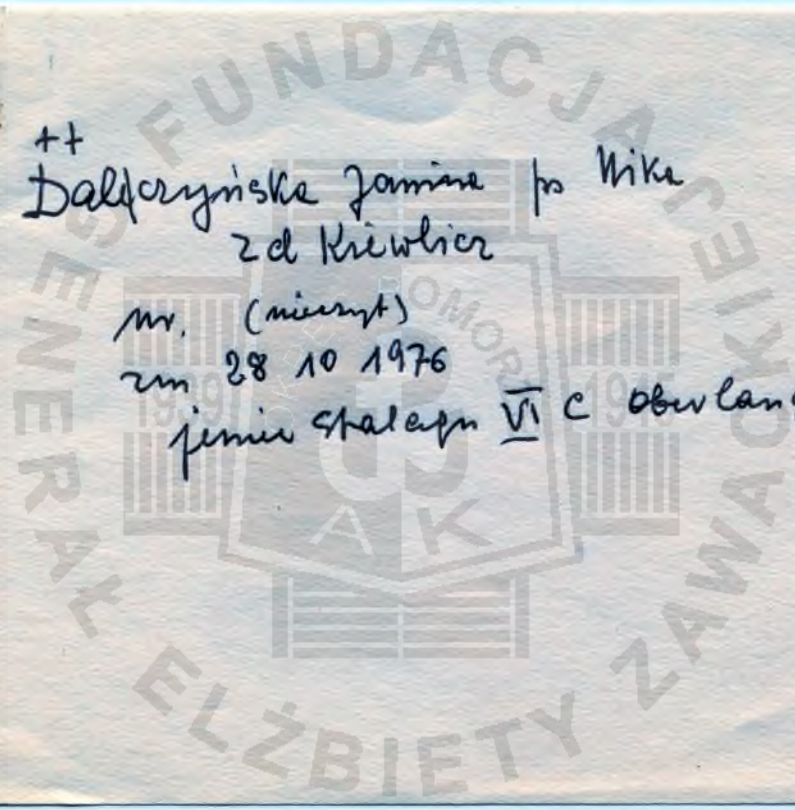 ++
Dalęczyńska Janina ps Nika
zd Kriwlicz
nr. (nieczyt)
zm 28 10 1976
jeniec stalagu VI C Oberlang
FUNDACJA
GENERAŁ ELŻBIETY ZAWACKIEJ
POMOR
1939
1945
AK